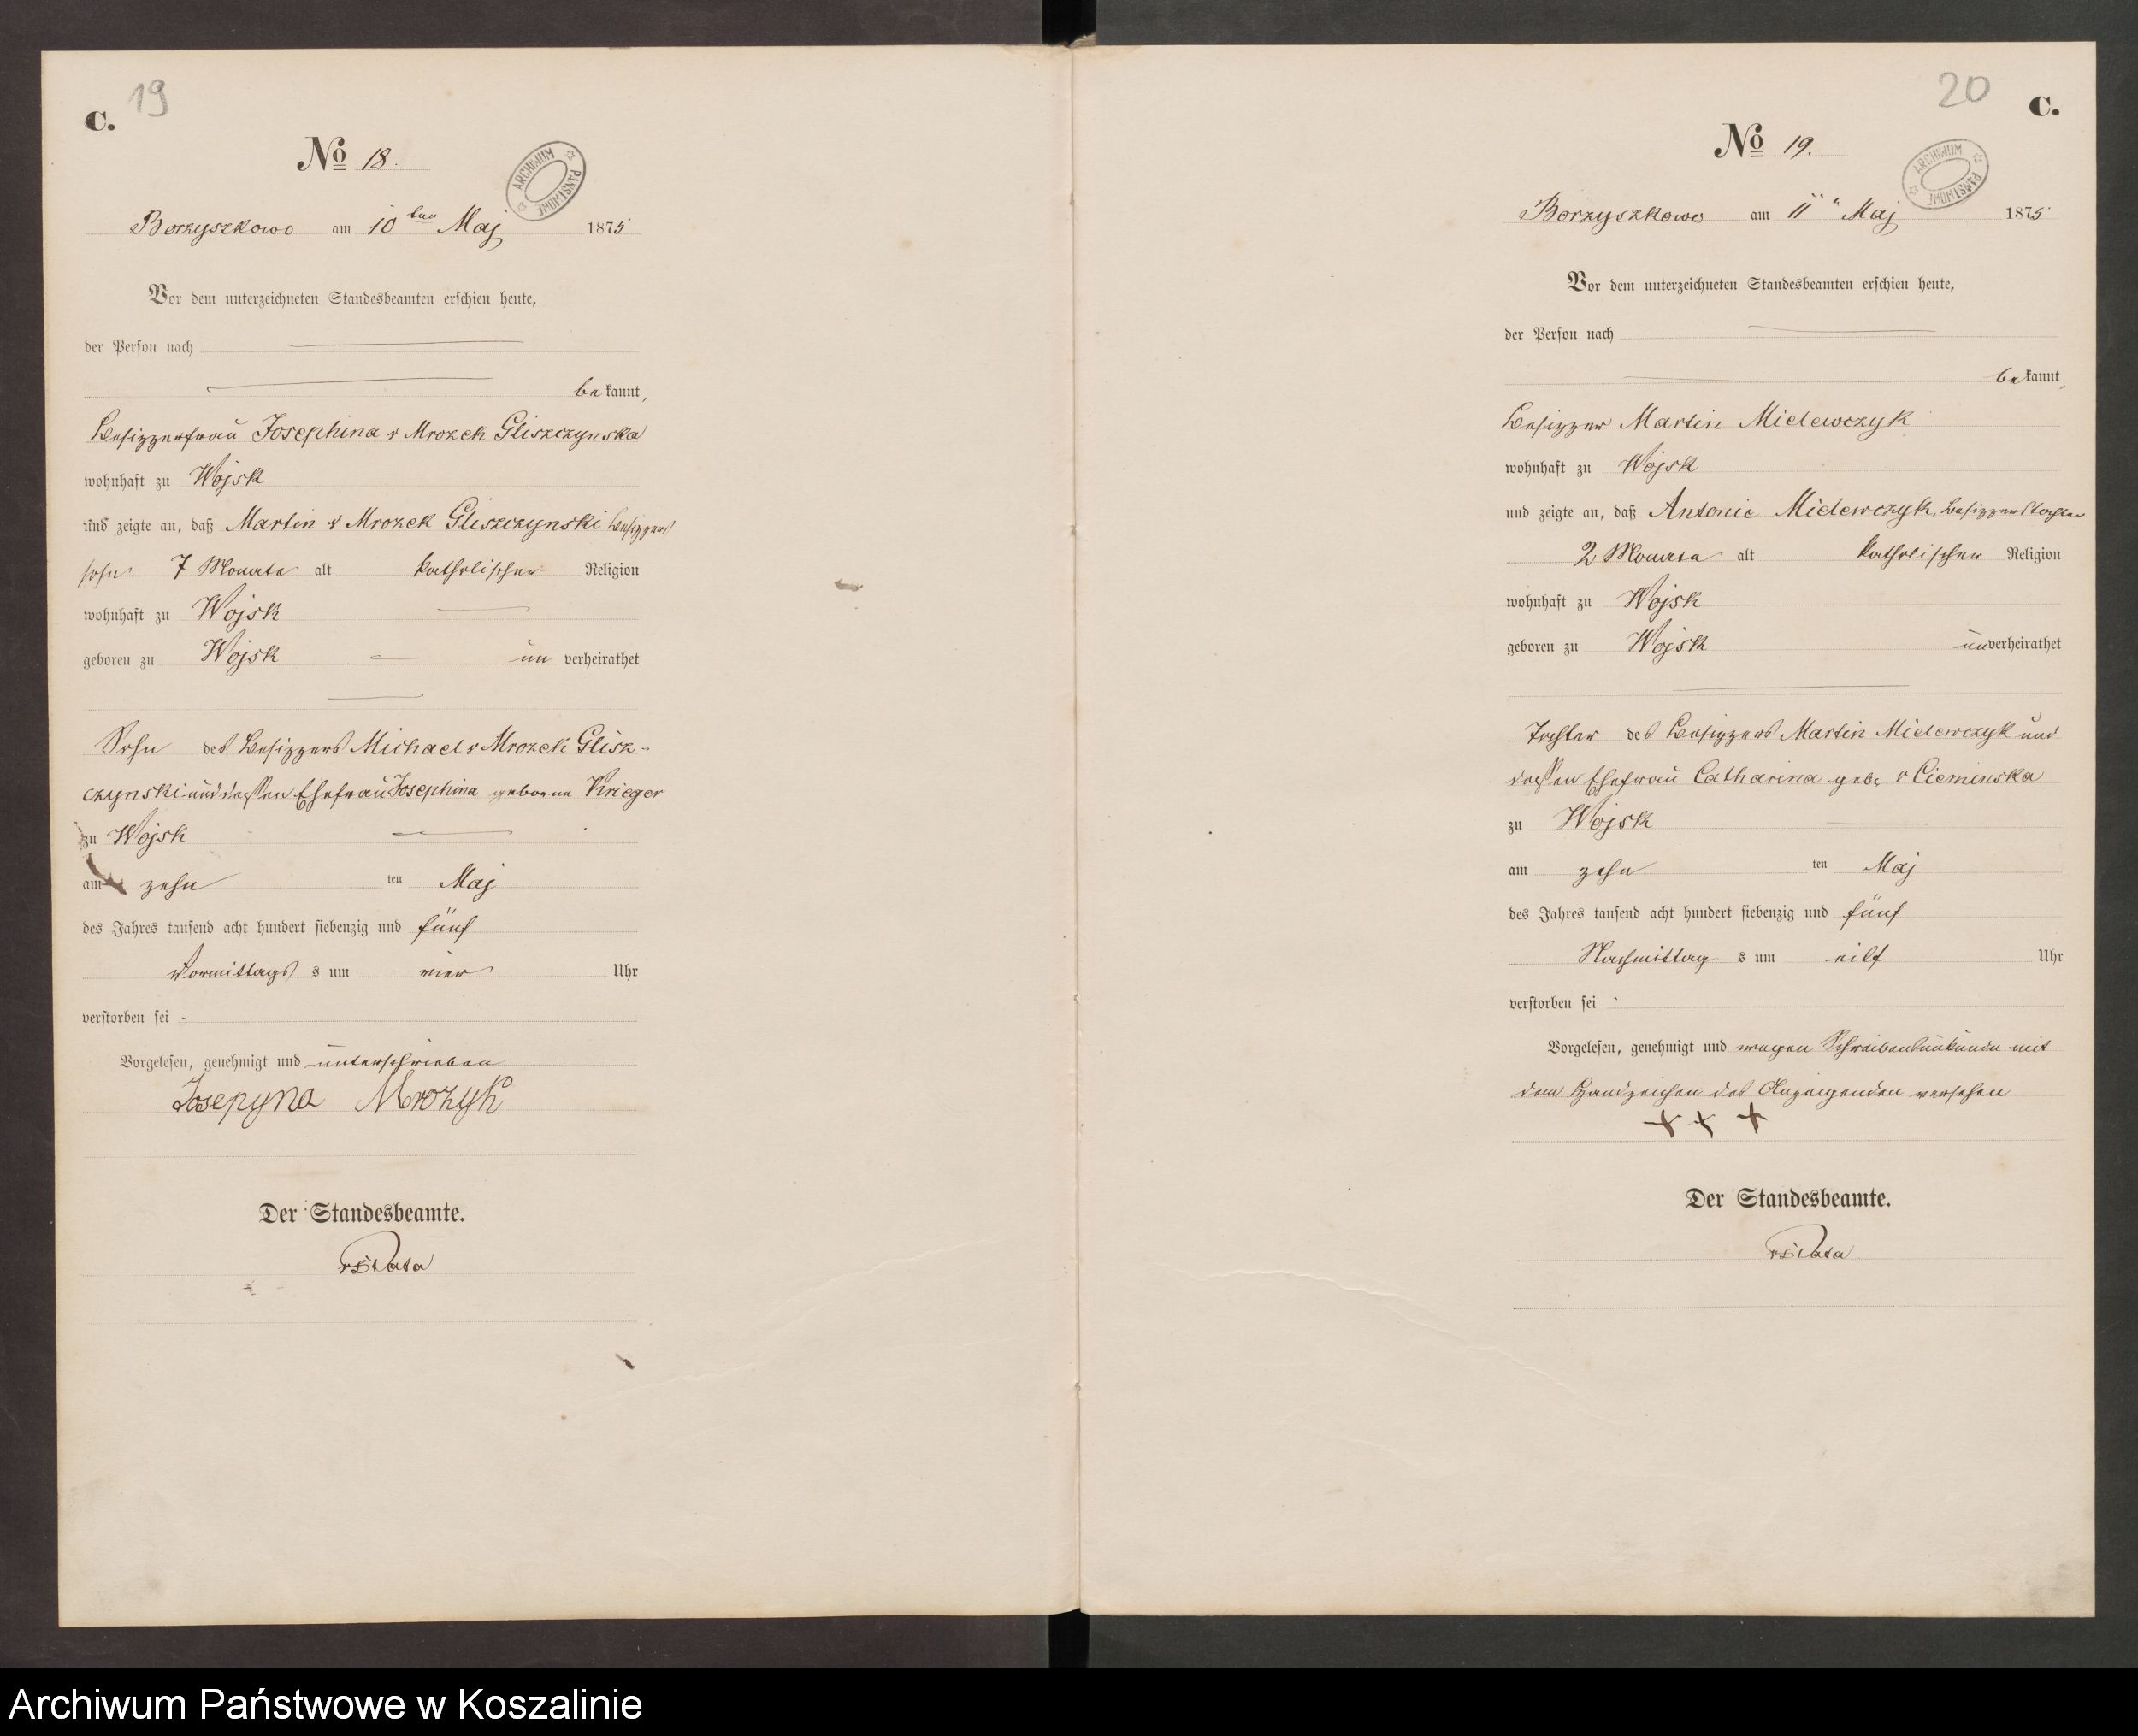 19
C.
No 18.
ARCHIWUM PAŃSTWOWE
Borzyszkowo am 10ten Maj 1875
Vor dem unterzeichneten Standesbeamten erschien heute,
der Person nach
bekannt,
Besizzerfrau Josephina v Mrozek Gliszczynska
wohnhaft zu Wojsk
und zeigte an, daß Martin v Mrozek Gliszczynski Besizzers
sohn 7 Monate alt katholischer Religion
wohnhaft zu Wojsk
geboren zu Wojsk un verheirathet
Sohn des Besizzers Michael v Mrozek Glisz-
czynski und dessen Ehefrau Josephina geborne Krieger
zu Wojsk
am zehn ten Maj
des Jahres tausend acht hundert siebenzig und fünf
Vormittags s um vier Uhr
verstorben sei
Vorgelesen, genehmigt und unterschrieben
Josepyna Mrozyk
Der Standesbeamte.
20
C.
No 19.
ARCHIWUM PAŃSTWOWE
Borzyszkowo am 11" Maj 1875
Vor dem unterzeichneten Standesbeamten erschien heute,
der Person nach
bekannt,
Besizzer Martin Mielewczyk
wohnhaft zu Wojsk
und zeigte an, daß Antonie Mielewczyk, Besizzerstochter
2 Monate alt katholischer Religion
wohnhaft zu Wojsk
geboren zu Wojsk unverheirathet
Tochter des Besizzers Martin Mielewczyk und
dessen Ehefrau Catharina geb. v Cieminska
zu Wojsk
am zehn ten Maj
des Jahres tausend acht hundert siebenzig und fünf
Nachmittag s um eilf Uhr
verstorben sei
Vorgelesen, genehmigt und wegen Schreibensunkunde mit
dem Handzeichen des Anzeigenden versehen
+ + +
Der Standesbeamte.
Archiwum Państwowe w Koszalinie